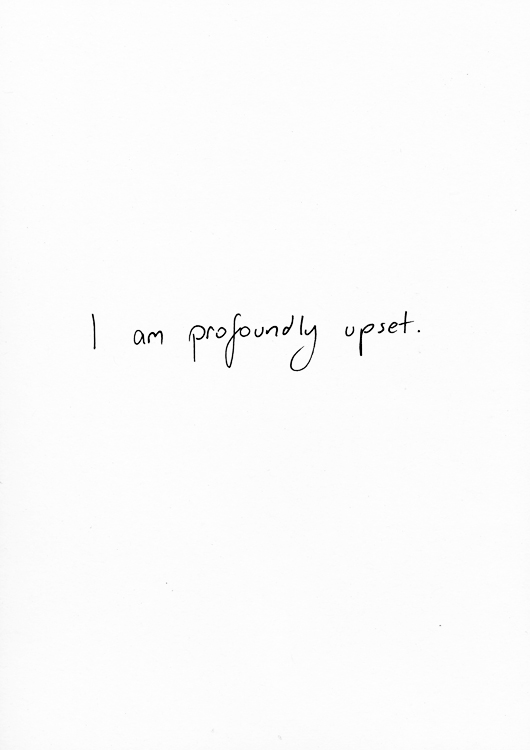 I am profoundly upset.